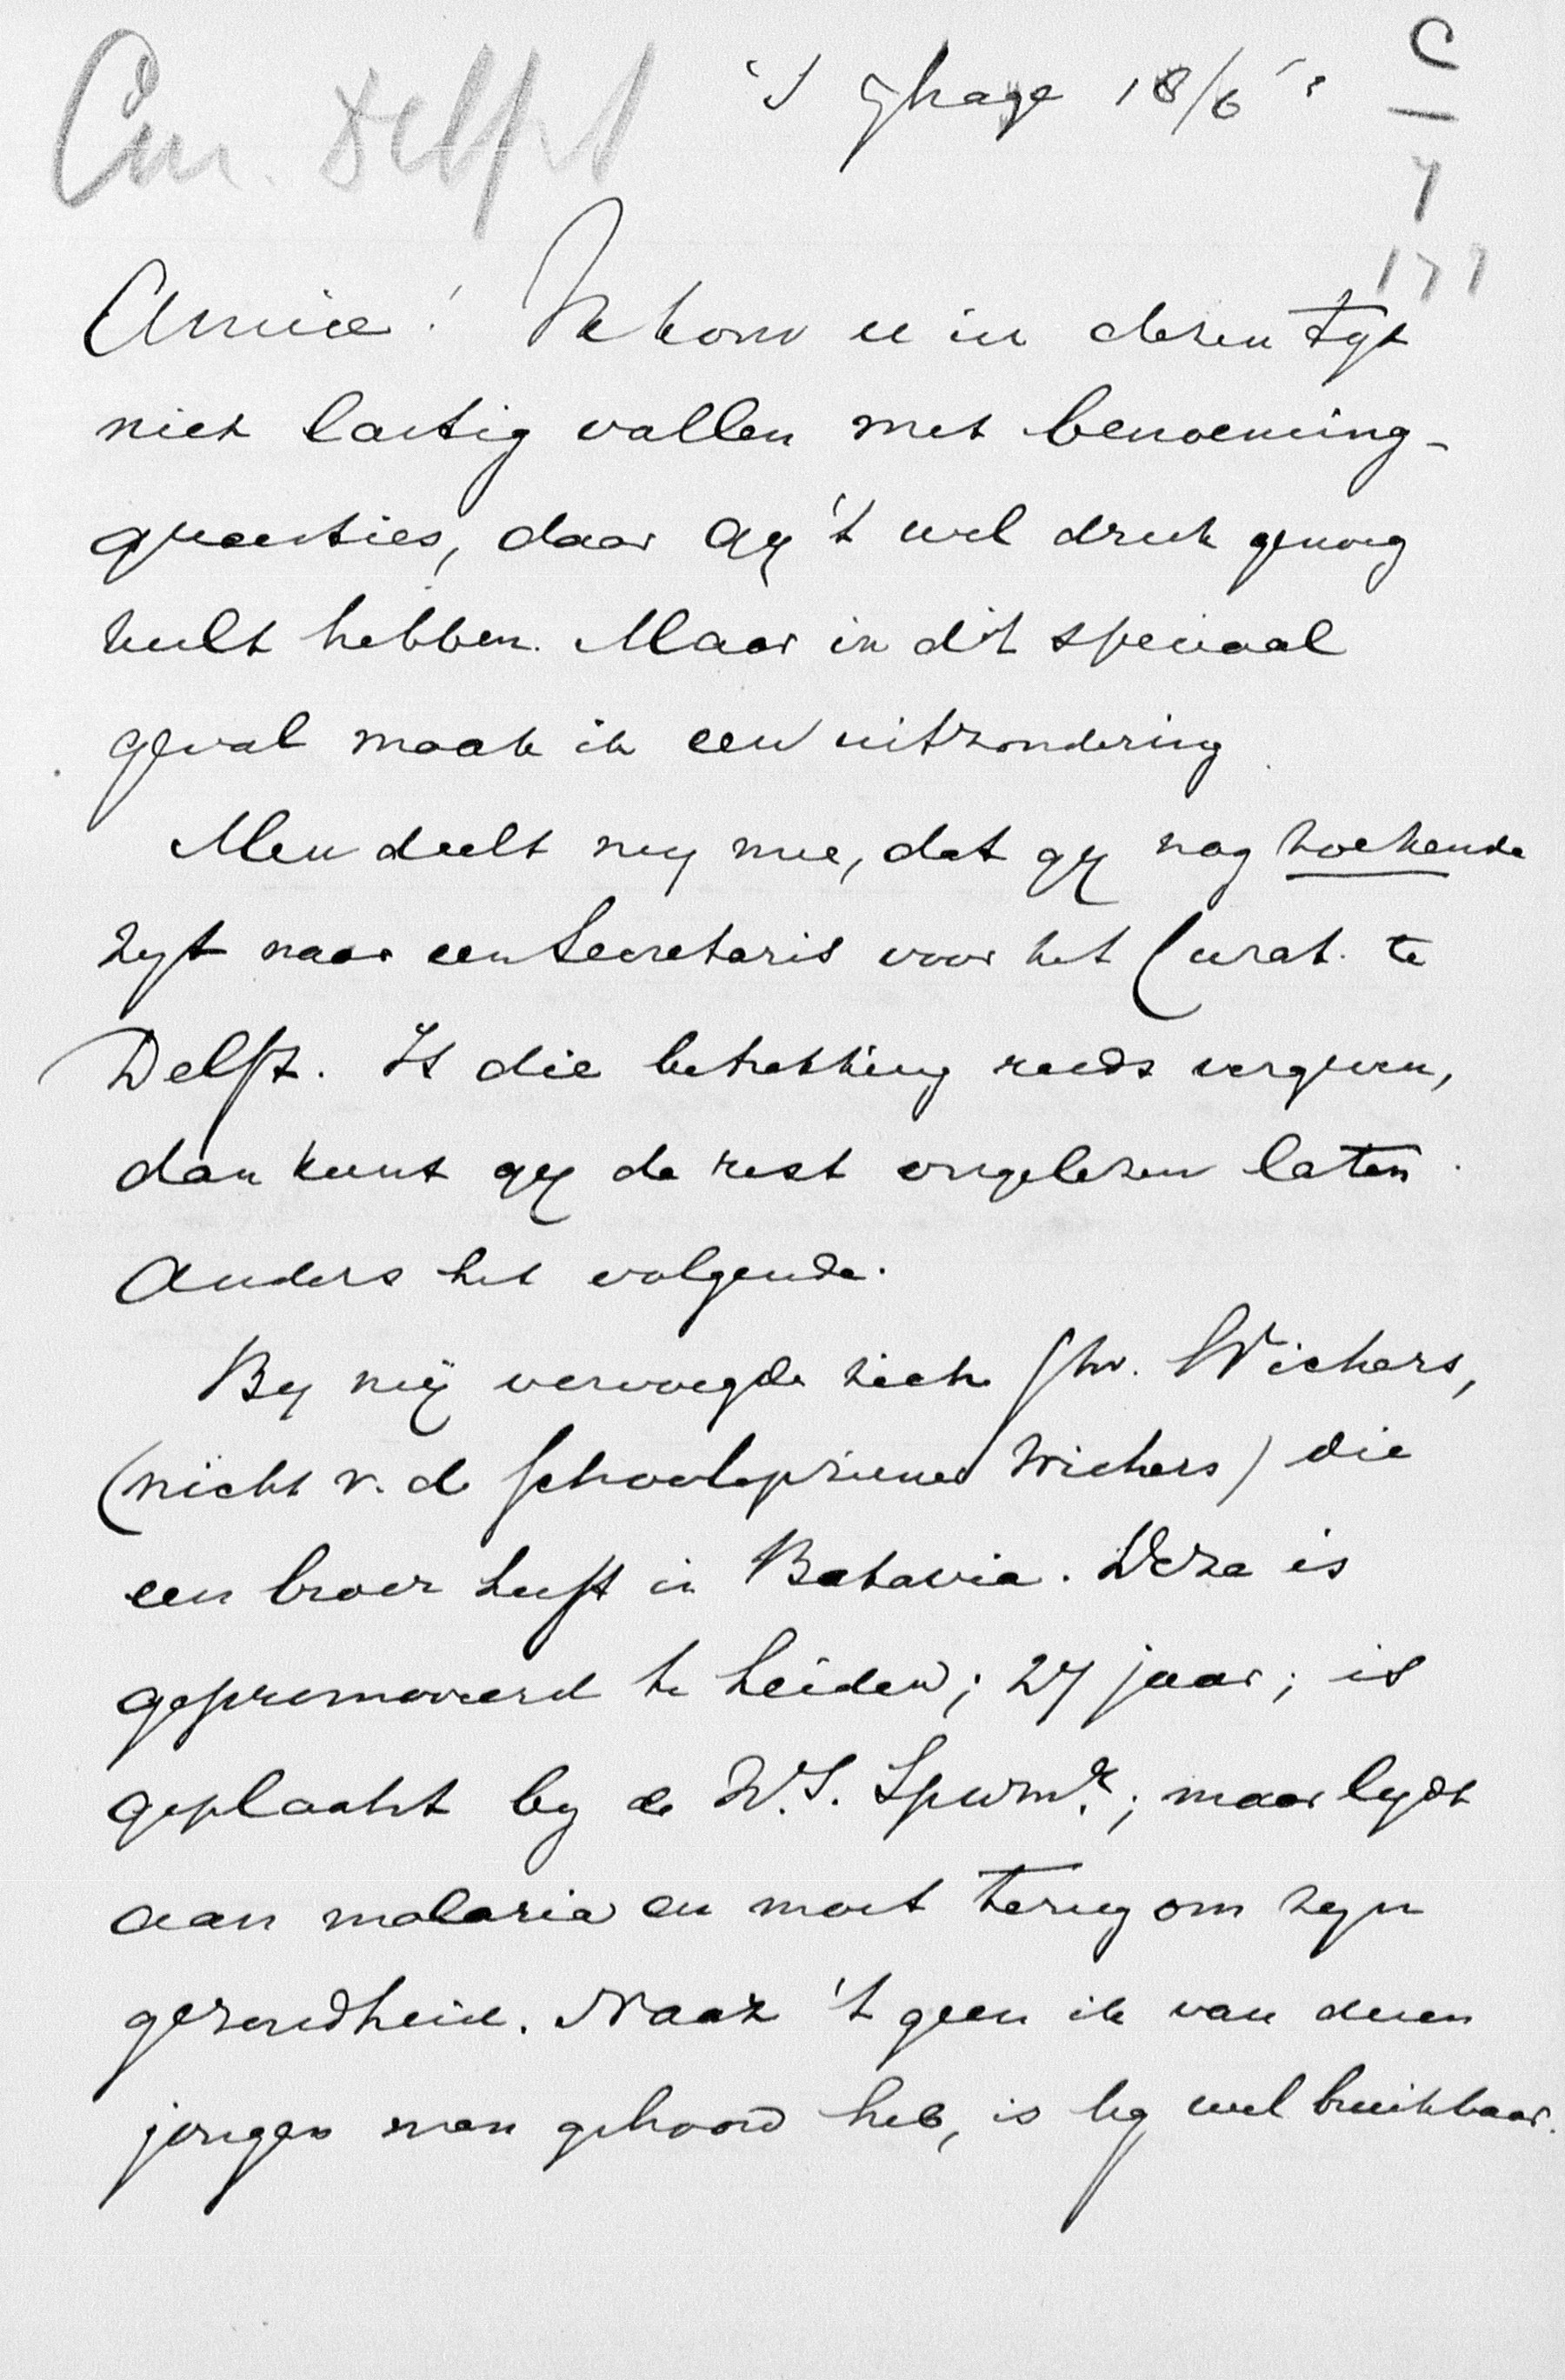 Cur. Delft
's Ghage 18/6
C
7
177
Amice! Ik kom u in dezen tijd
niet lastig vallen met benoeming-
quaesties, daar Gij 't wel druk genoeg
zult hebben. Maar in dit speciaal
geval maak ik een uitzondering.
Men deelt mij mee, dat gij nog zoekende
zijt naar een Secretaris voor het Curat. te
Delft. Is die betrekking reeds vergeven,
dan kunt gij de rest ongelezen laten.
Anders het volgende.
Bij mij vervoegde zich Jhr. Wichers,
(nicht v. d. Schoolopziener Wichers) die
een broer heeft in Batavia. Deze is
gepromoveerd te Leiden; 27 jaar; is
geplaatst bij de W.S. Spwm.; maar lijdt
aan malaria en moet terug om zijn
gezondheid. Naar 't geen ik van dezen
jongen man gehoord heb, is hij wel bruikbaar.